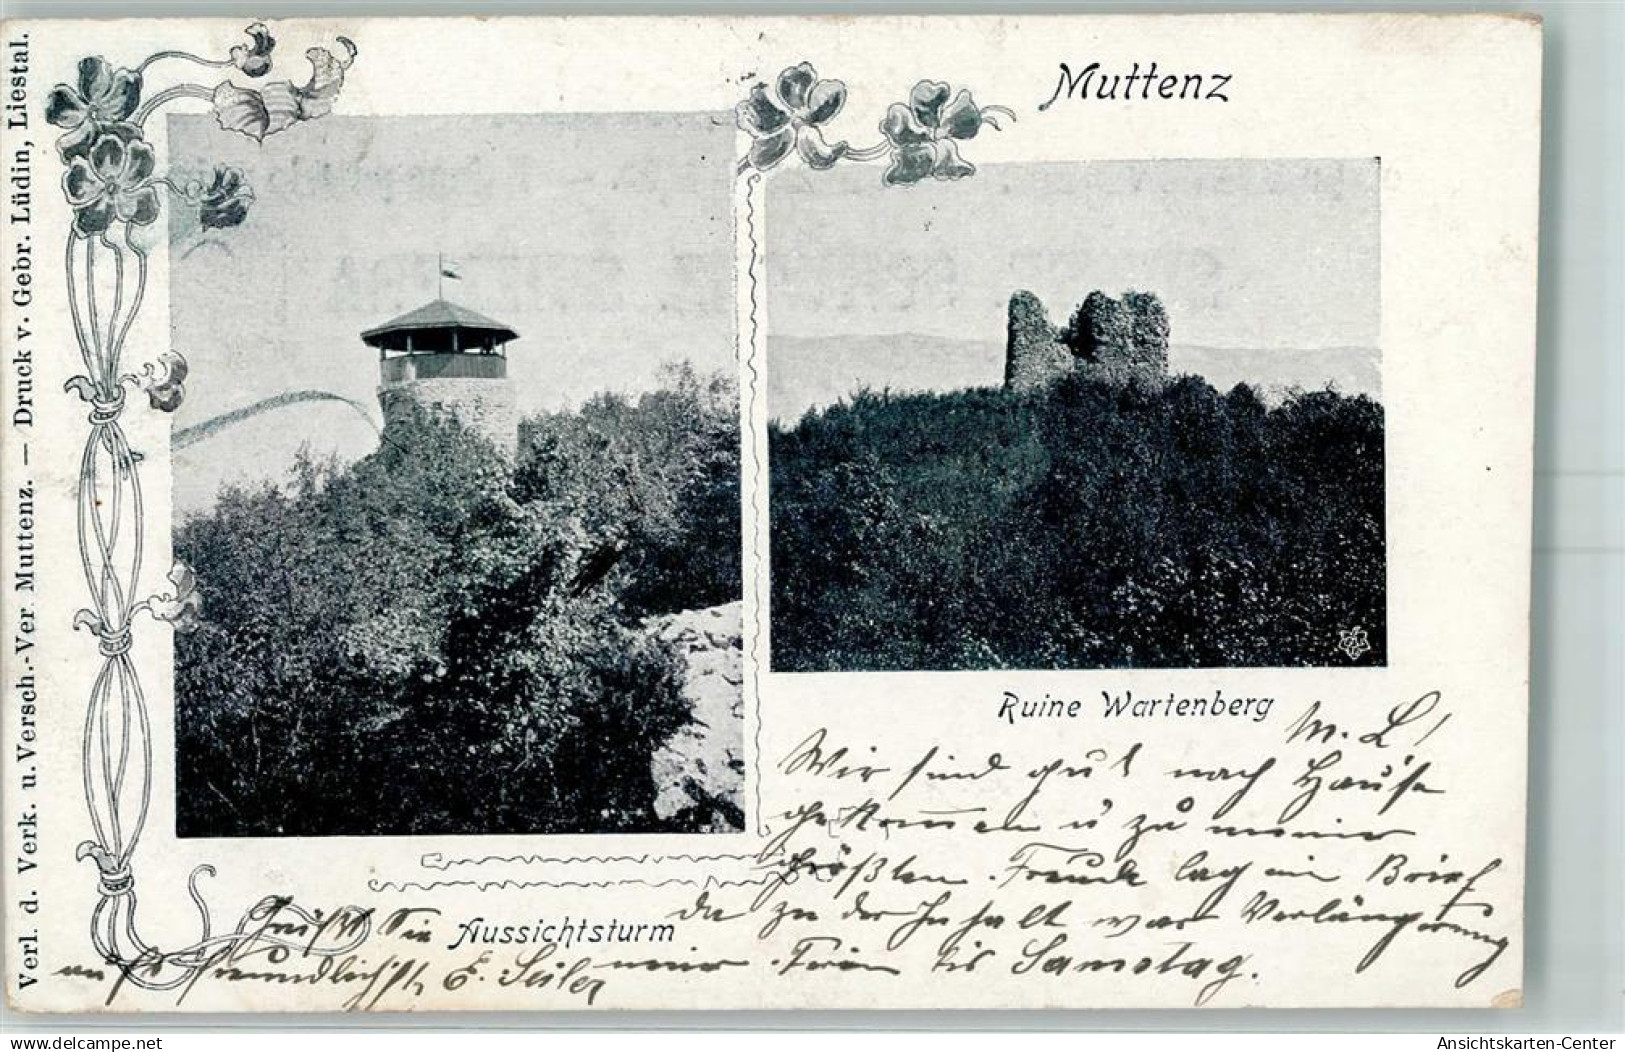 Muttenz
Verl. d. Verk. u. Versch.-Ver Muttenz. — Druck v. Gebr. Lüdin, Liestal.
Ruine Wartenberg
Aussichtsturm
M. L!
Wir sind gut nach Hause
gekommen u zu meiner
größten Freude lag ein Brief
da zu der Inhalt war Verlängerung
meiner Ferien bis Samstag.
Grüßt Sie
aufs freundlichste, E. Seiler
www.delcampe.net
Ansichtskarten-Center